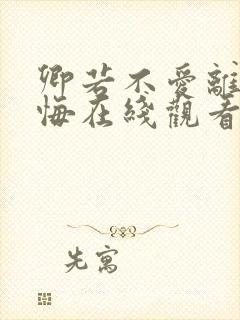 卿若不愛離
悔在綫觀看
先寓